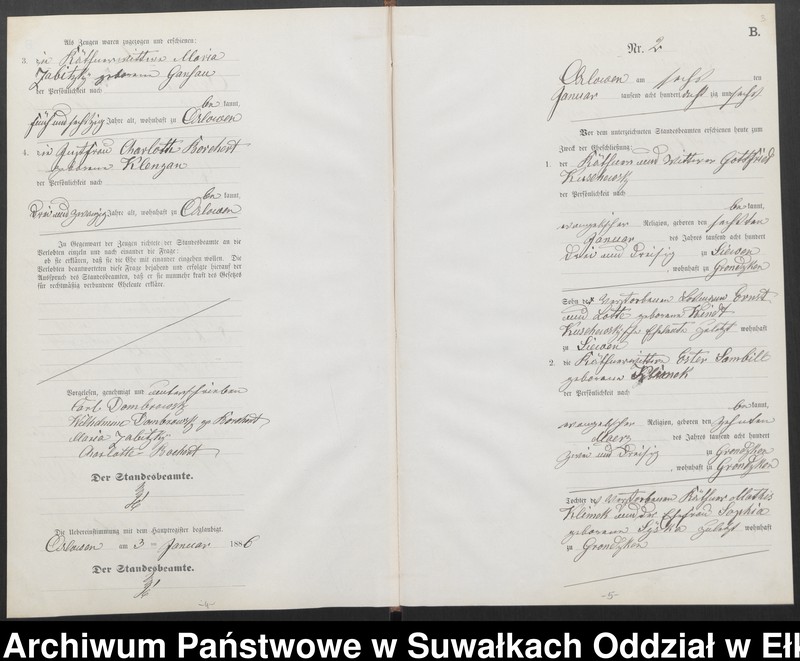 Als Zeugen waren zugezogen und erschienen:
3. die Käthnerwittwe Maria
Jabitzky geborene Ganhau
der Persönlichkeit nach
be kannt,
fünf und sechszig Jahre alt, wohnhaft zu Orlowen
4. die Gustfrau Charlotte Borchert
geborene Klenzan
der Persönlichkeit nach
be kannt,
drei und zwanzig Jahre alt, wohnhaft zu Orlowen
In Gegenwart der Zeugen richtete der Standesbeamte an die
Verlobten einzeln und nach einander die Frage:
ob sie erklären, daß sie die Ehe mit einander eingehen wollen. Die
Verlobten beantworteten diese Frage bejahend und erfolgte hierauf der
Ausspruch des Standesbeamten, daß er sie nunmehr kraft des Gesetzes
für rechtmäßig verbundene Eheleute erkläre.
Vorgelesen, genehmigt und unterschrieben
Carl Dombrowsky
Wilhelmine Dombrowsky gb Borchert
Maria Jabitzky
Charlotte Borchert
Der Standesbeamte.
Die Uebereinstimmung mit dem Hauptregister beglaubigt.
Orlowen am 3 ten Januar 1886
Der Standesbeamte.
-4-
B.
Nr. 2
Orlowen am sechs ten
Januar tausend acht hundert acht zig und sechs
Vor dem unterzeichneten Standesbeamten erschienen heute zum
Zweck der Eheschließung:
1. der Käthner und Wittwer Gottfried
der Persönlichkeit nach
be kannt,
evangelischer Religion, geboren den sechsten
Januar des Jahres tausend acht hundert
drei und dreißig zu Siewen
, wohnhaft zu Grondzken
Sohn des verstorbenen Losmann Ernst
und Lotte geborene Kindt
Eheleute zuletzt wohnhaft
zu Siewen
2. die Käthnerwittwe Ester Sambill
geborene Klimek
der Persönlichkeit nach
be kannt,
evangelischer Religion, geboren den zehnten
Maerz des Jahres tausend acht hundert
zwei und dreißig zu Grondzken
, wohnhaft zu Grondzken
Tochter des verstorbenen Käthner Mathes
Klimek und der Ehefrau Sophia
geborene zuletzt wohnhaft
zu Grondzken
-5-
Archiwum Państwowe w Suwałkach Oddział w Ełk